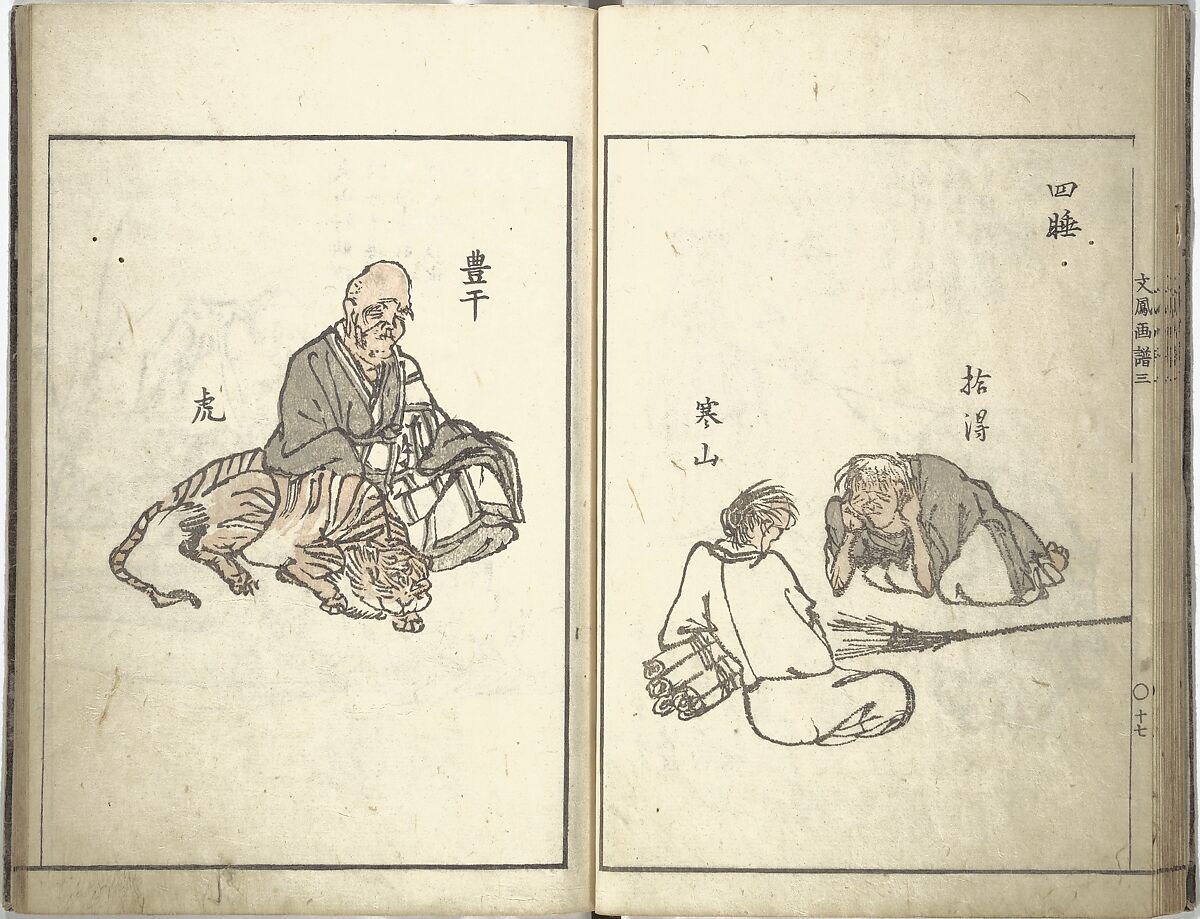 四睡
文鳳画譜三
拾得
寒山
〇十七
豊干
虎